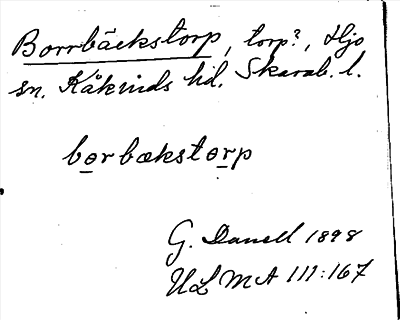 Borrbäckstorp, torp?, Hjo
sn. Kåkinds hd. Skarab. l.
borbækstorp
G. Danell 1898
ULMA 111:167